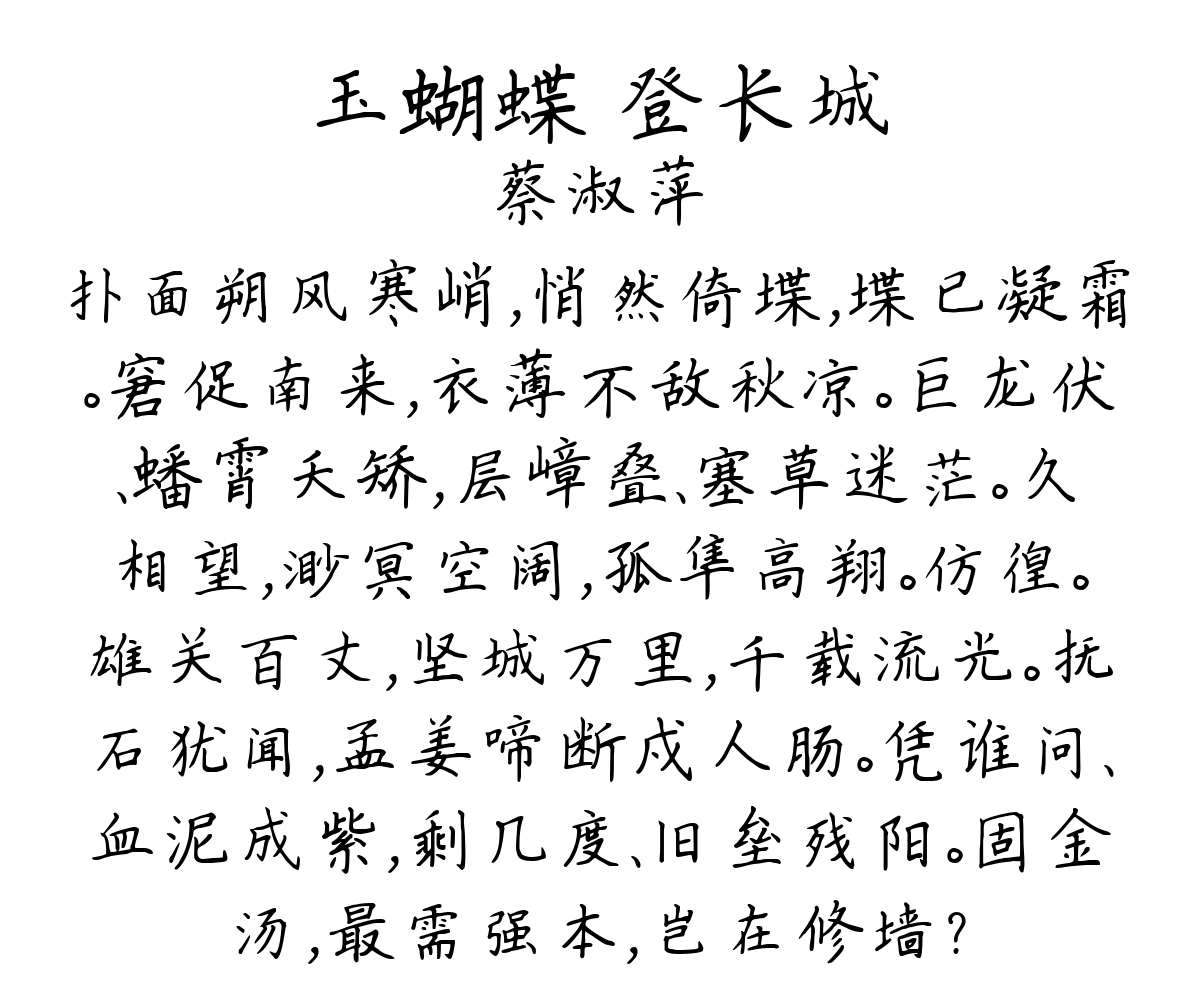 玉蝴蝶 登长城
蔡淑萍
扑面朔风寒峭,悄然倚堞,堞已凝霜
。窘促南来,衣薄不敌秋凉。巨龙伏
、蟠霄夭矫,层嶂叠、塞草迷茫。久
相望,渺冥空阔,孤隼高翔。仿徨。
雄关百丈,坚城万里,千载流光。抚
石犹闻,孟姜啼断戍人肠。凭谁问、
血泥成紫,剩几度、旧垒残阳。固金
汤,最需强本,岂在修墙?